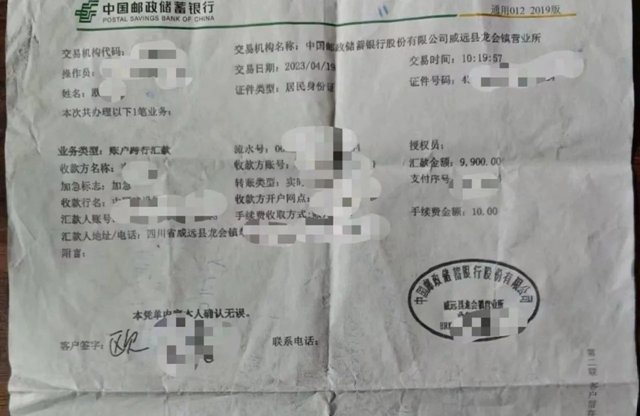 中国邮政储蓄银行
POSTAL SAVINGS BANK OF CHINA
通用012 2019版
交易机构代码: 交易机构名称: 中国邮政储蓄银行股份有限公司威远县龙会镇营业所
操作员: 交易日期: 2023/04/19 交易时间: 10:19:57
姓名: 证件类型: 居民身份证 证件号码:
本次共办理以下1笔业务:
业务类型: 账户跨行汇款 流水号: 授权员:
收款方名称: 收款方账号: 汇款金额: 9,900.00
加急标志: 加急 转账类型: 实时 支付序号:
收款行名: 收款方开户网点:
汇款人账号: 手续费收取方式: 手续费金额: 10.00
汇款人地址/电话: 四川省威远县龙会镇
附言:
本凭单内容本人确认无误。
客户签字: 欧 联系电话:
中国邮政储蓄银行股份有限公司
威远县龙会镇营业所
第二联 客户留存